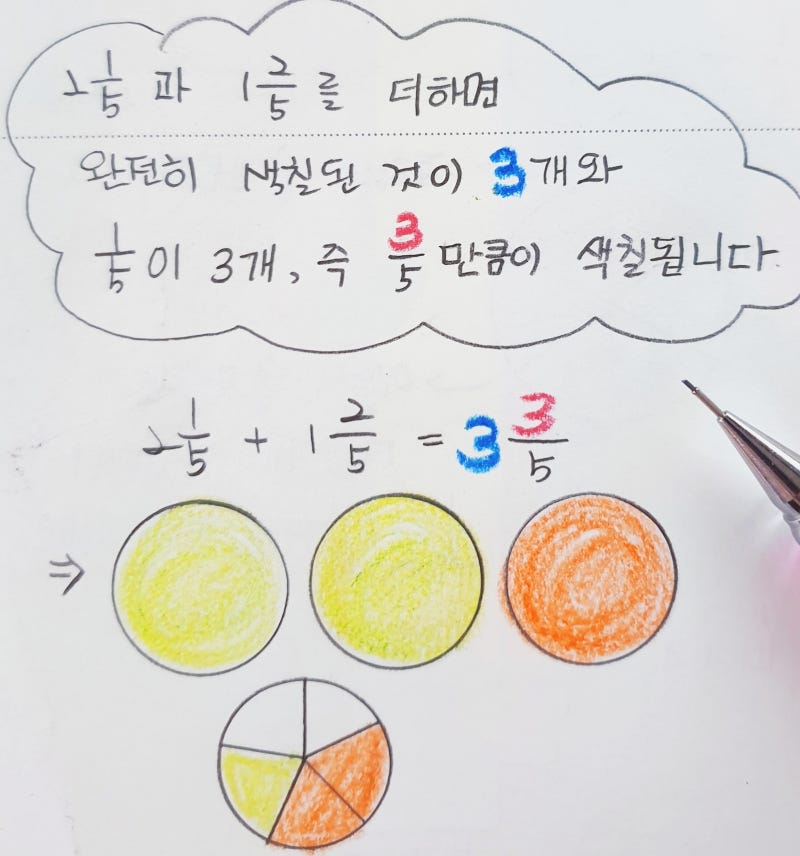 2 1/5 과 1 2/5 를 더하면
완전히 색칠된 것이 3개와
1/5이 3개, 즉 3/5 만큼이 색칠됩니다
2 1/5 + 1 2/5 = 3 3/5
⇒